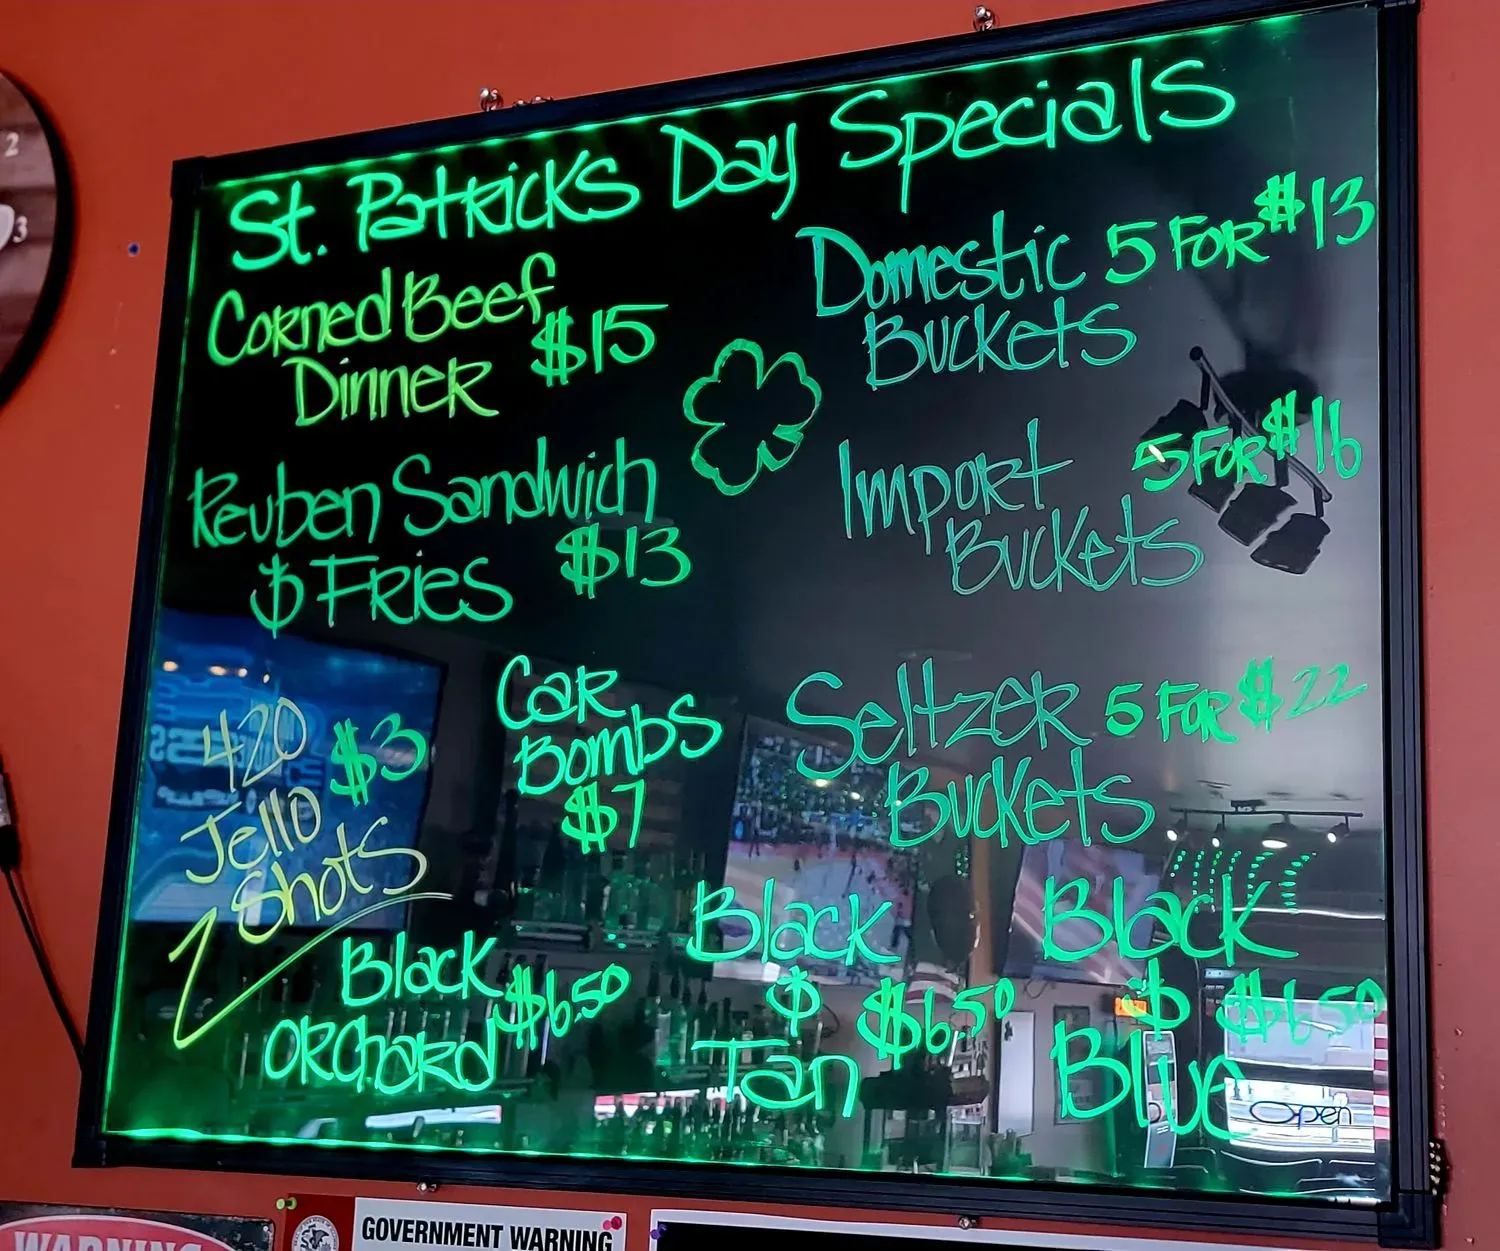 St. Patricks Day Specials
Corned Beef
Dinner $15
Reuben Sandwich
& Fries $13
Domestic 5 For $13
Buckets
Import 5 For $16
Buckets
Seltzer 5 For $22
Buckets
420
Jello
Shots
$3
Car
Bombs
$7
Black
Orchard
$6.50
Black
&
Tan
$6.50
Black
&
Blue
$6.50
Open
2
3
WARNING
GOVERNMENT WARNING